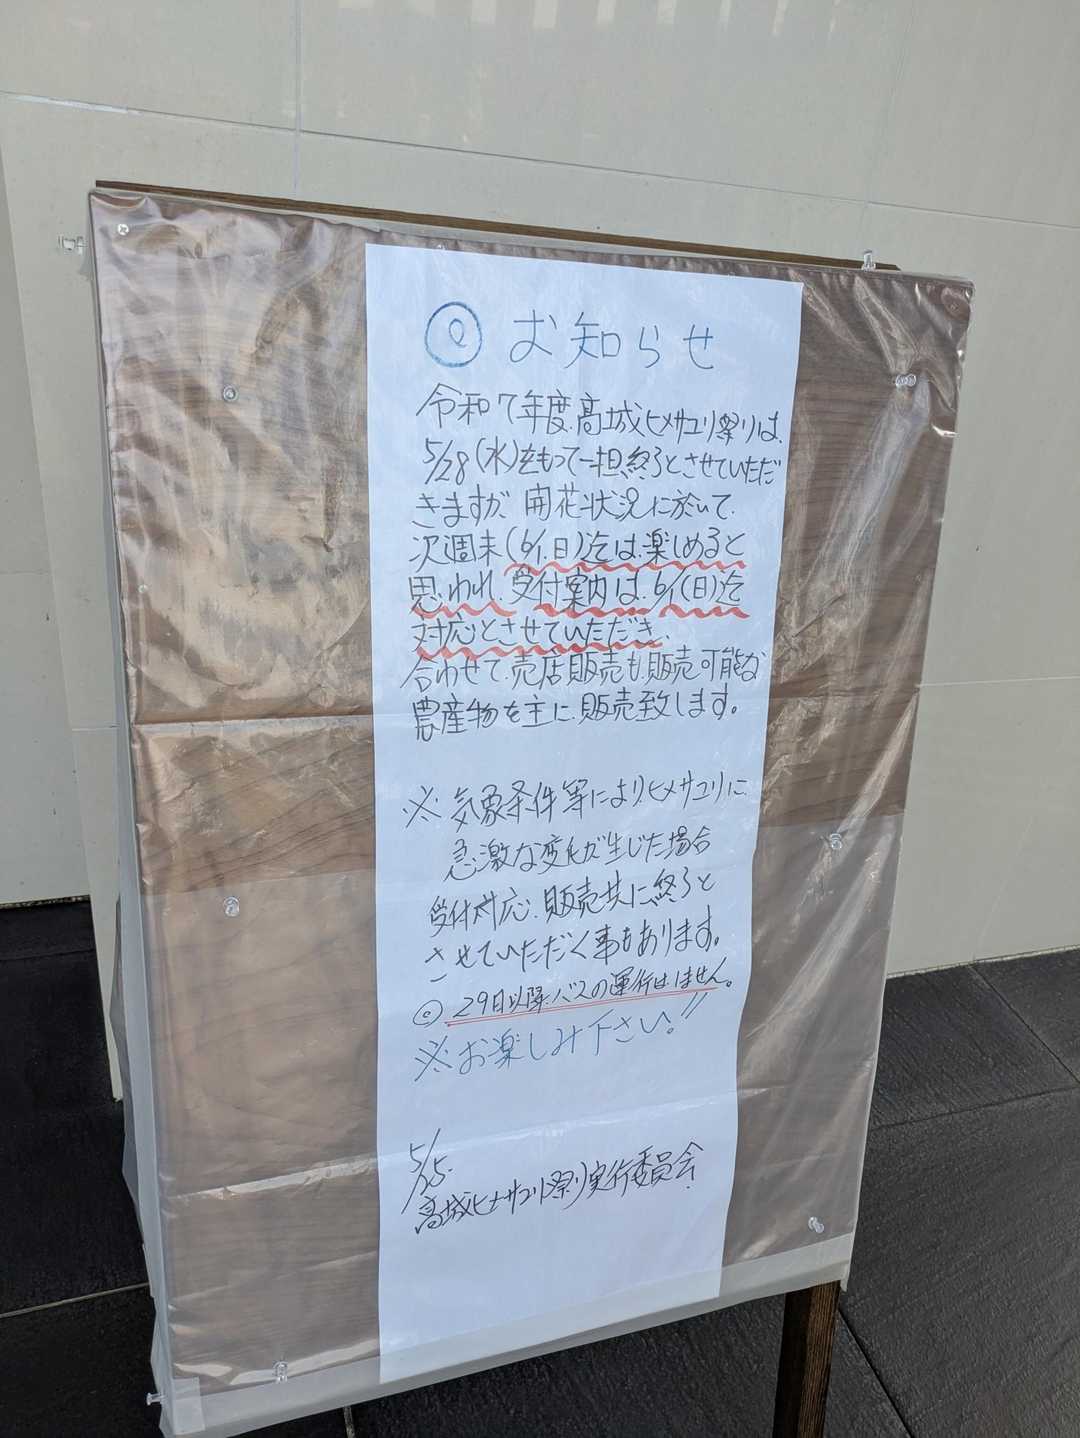 ◎ お知らせ
令和7年度、高城ヒメサユリ祭りは、
5/28(水)をもって一担終了とさせていただ
きますが、開花状況に於いて、
次週末(6/1.日)迄は、楽しめると
思われ、受付案内は、6/1(日)迄
対応とさせていただき、
合わせて、売店販売も、販売可能な
農産物を主に、販売致します。
※ 気象条件等により、ヒメサユリに
急激な変化が生じた場合
受付対応、販売共に、終了と
させていただく事もあります。
◎ 29日以降、バスの運行はません。
※ お楽しみ下さい。!!
5/25.
高城ヒメサユリ祭り実行委員会